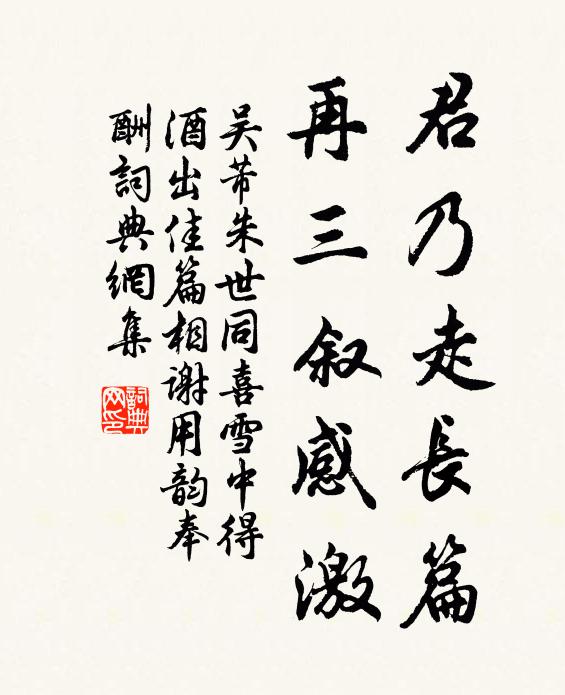 君乃走長篇
再三叙感激
吴芾朱世同喜雪中得
酒出佳篇相谢用韵奉
酬詞典網集
詞典
网印